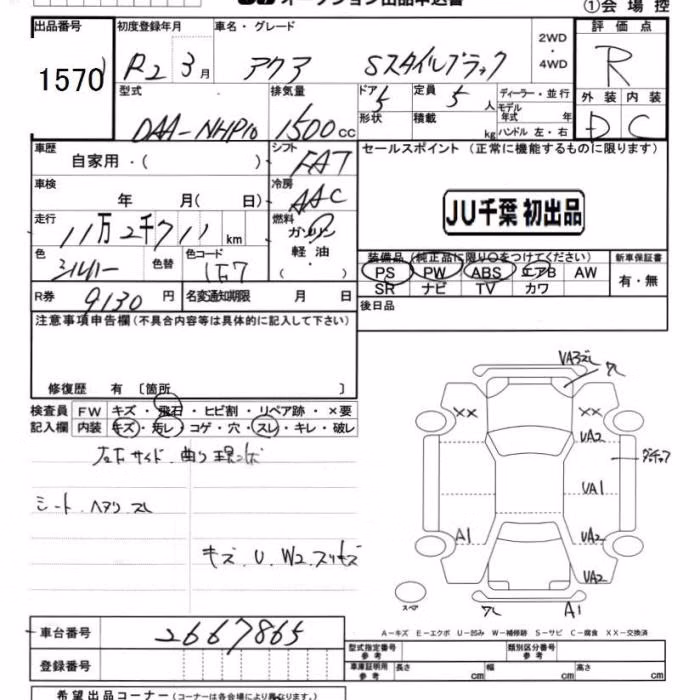 オークション出品申込書
①会場控
出品番号 初度登録年月 車名・グレード 2WD・4WD 評価点
1570 R2 3月 アクア Sスタイルブラック R
型式 排気量 ドア 5 定員 5人 ディーラー・並行 外装 内装
DAA-NHP10 1500cc 形状 積載 kg モデル年式 年 D C
ハンドル 左・右
車歴 自家用・( ) シフト FAT セールスポイント (正常に機能するものに限ります)
車検 年 月( 日) 冷房 AAC
JU千葉 初出品
走行 11万2千711km 燃料 ガソリン 軽油 ・( )
色 シルバー 色替 色コード 1F7 装備品 (純正品に限り○をつけてください) 新車保証書
PS PW ABS エアB AW 有・無
SR ナビ TV カワ
R券 9130円 名変通知期限 月 日 後日品
注意事項申告欄(不具合内容等は具体的に記入して下さい)
修復歴 有 〔箇所 〕
検査員 FW キズ・飛石・ヒビ割・リペア跡・×要
記入欄 内装 キズ・汚レ・コゲ・穴・スレ・キレ・破レ
シート ヘタリ スレ
キズ.U.W2.スリキズ
××
××
VA2
VA1
A1
VA2
VA2
スペア
A1
A-キズ E-エクボ U-凹み W-補修跡 S-サビ C-腐食 XX-交換済
車台番号 2667865 型式指定番号 参考 類別区分番号 参考
登録番号 車庫証明用 参考 長さ cm 幅 cm 高さ cm
希望出品コーナー(コーナーは各会場により異なります。)